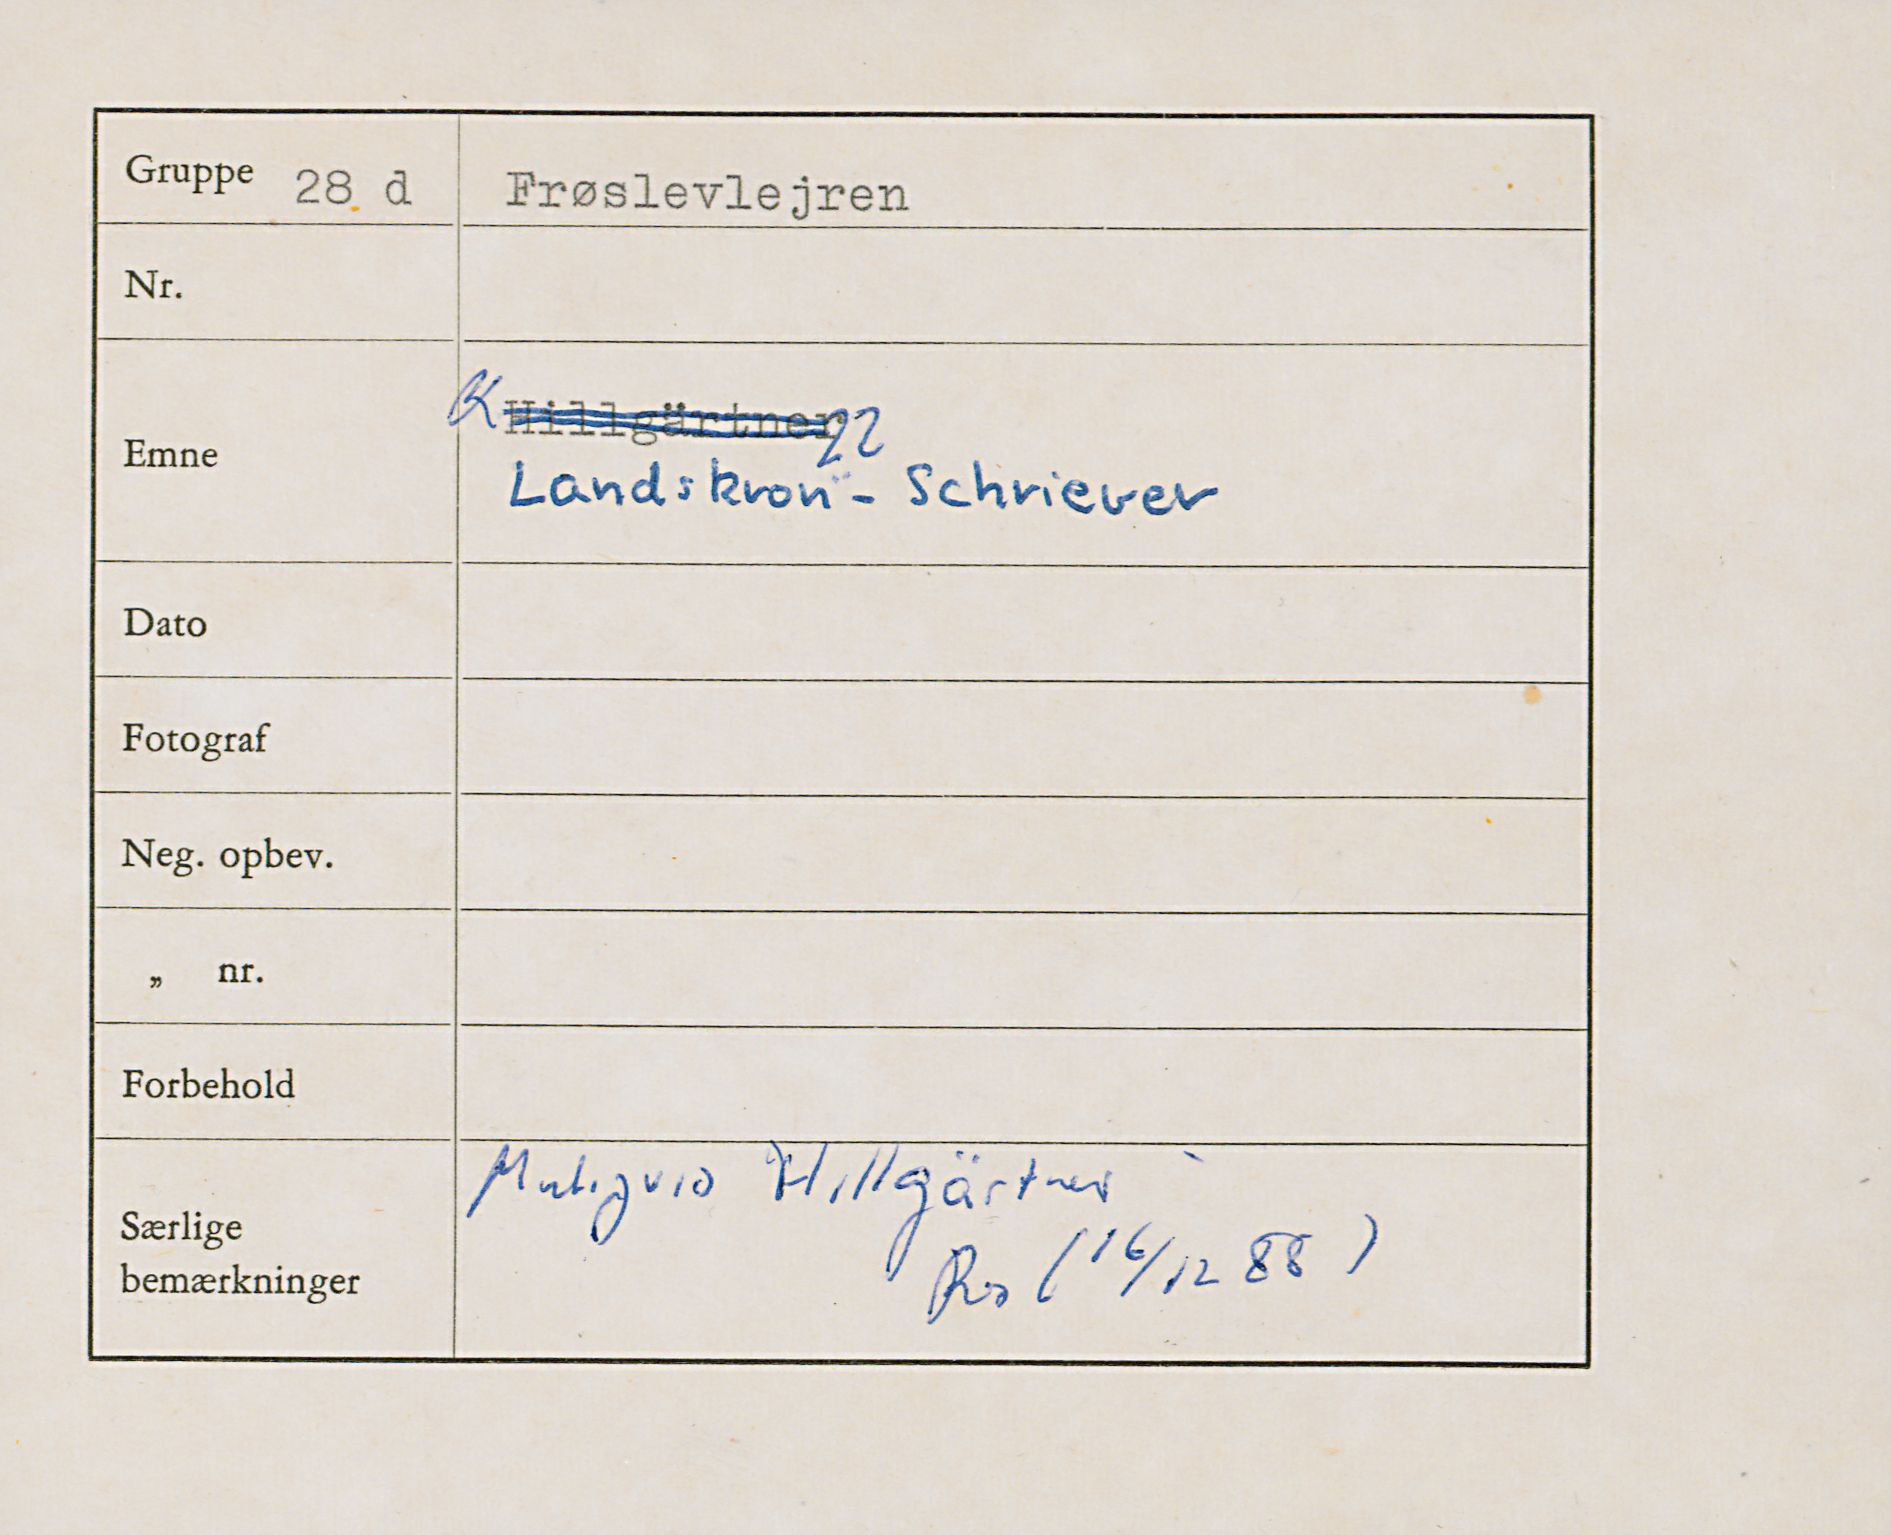 Gruppe 28 d Frøslevlejren
Nr.
Hillgärtner
Emne
Landskron - Schriever
Dato
Fotograf
Neg. opbev.
„ nr.
Forbehold
Muligvis Hillgärtner
Særlige
(16/12 88)
bemærkninger